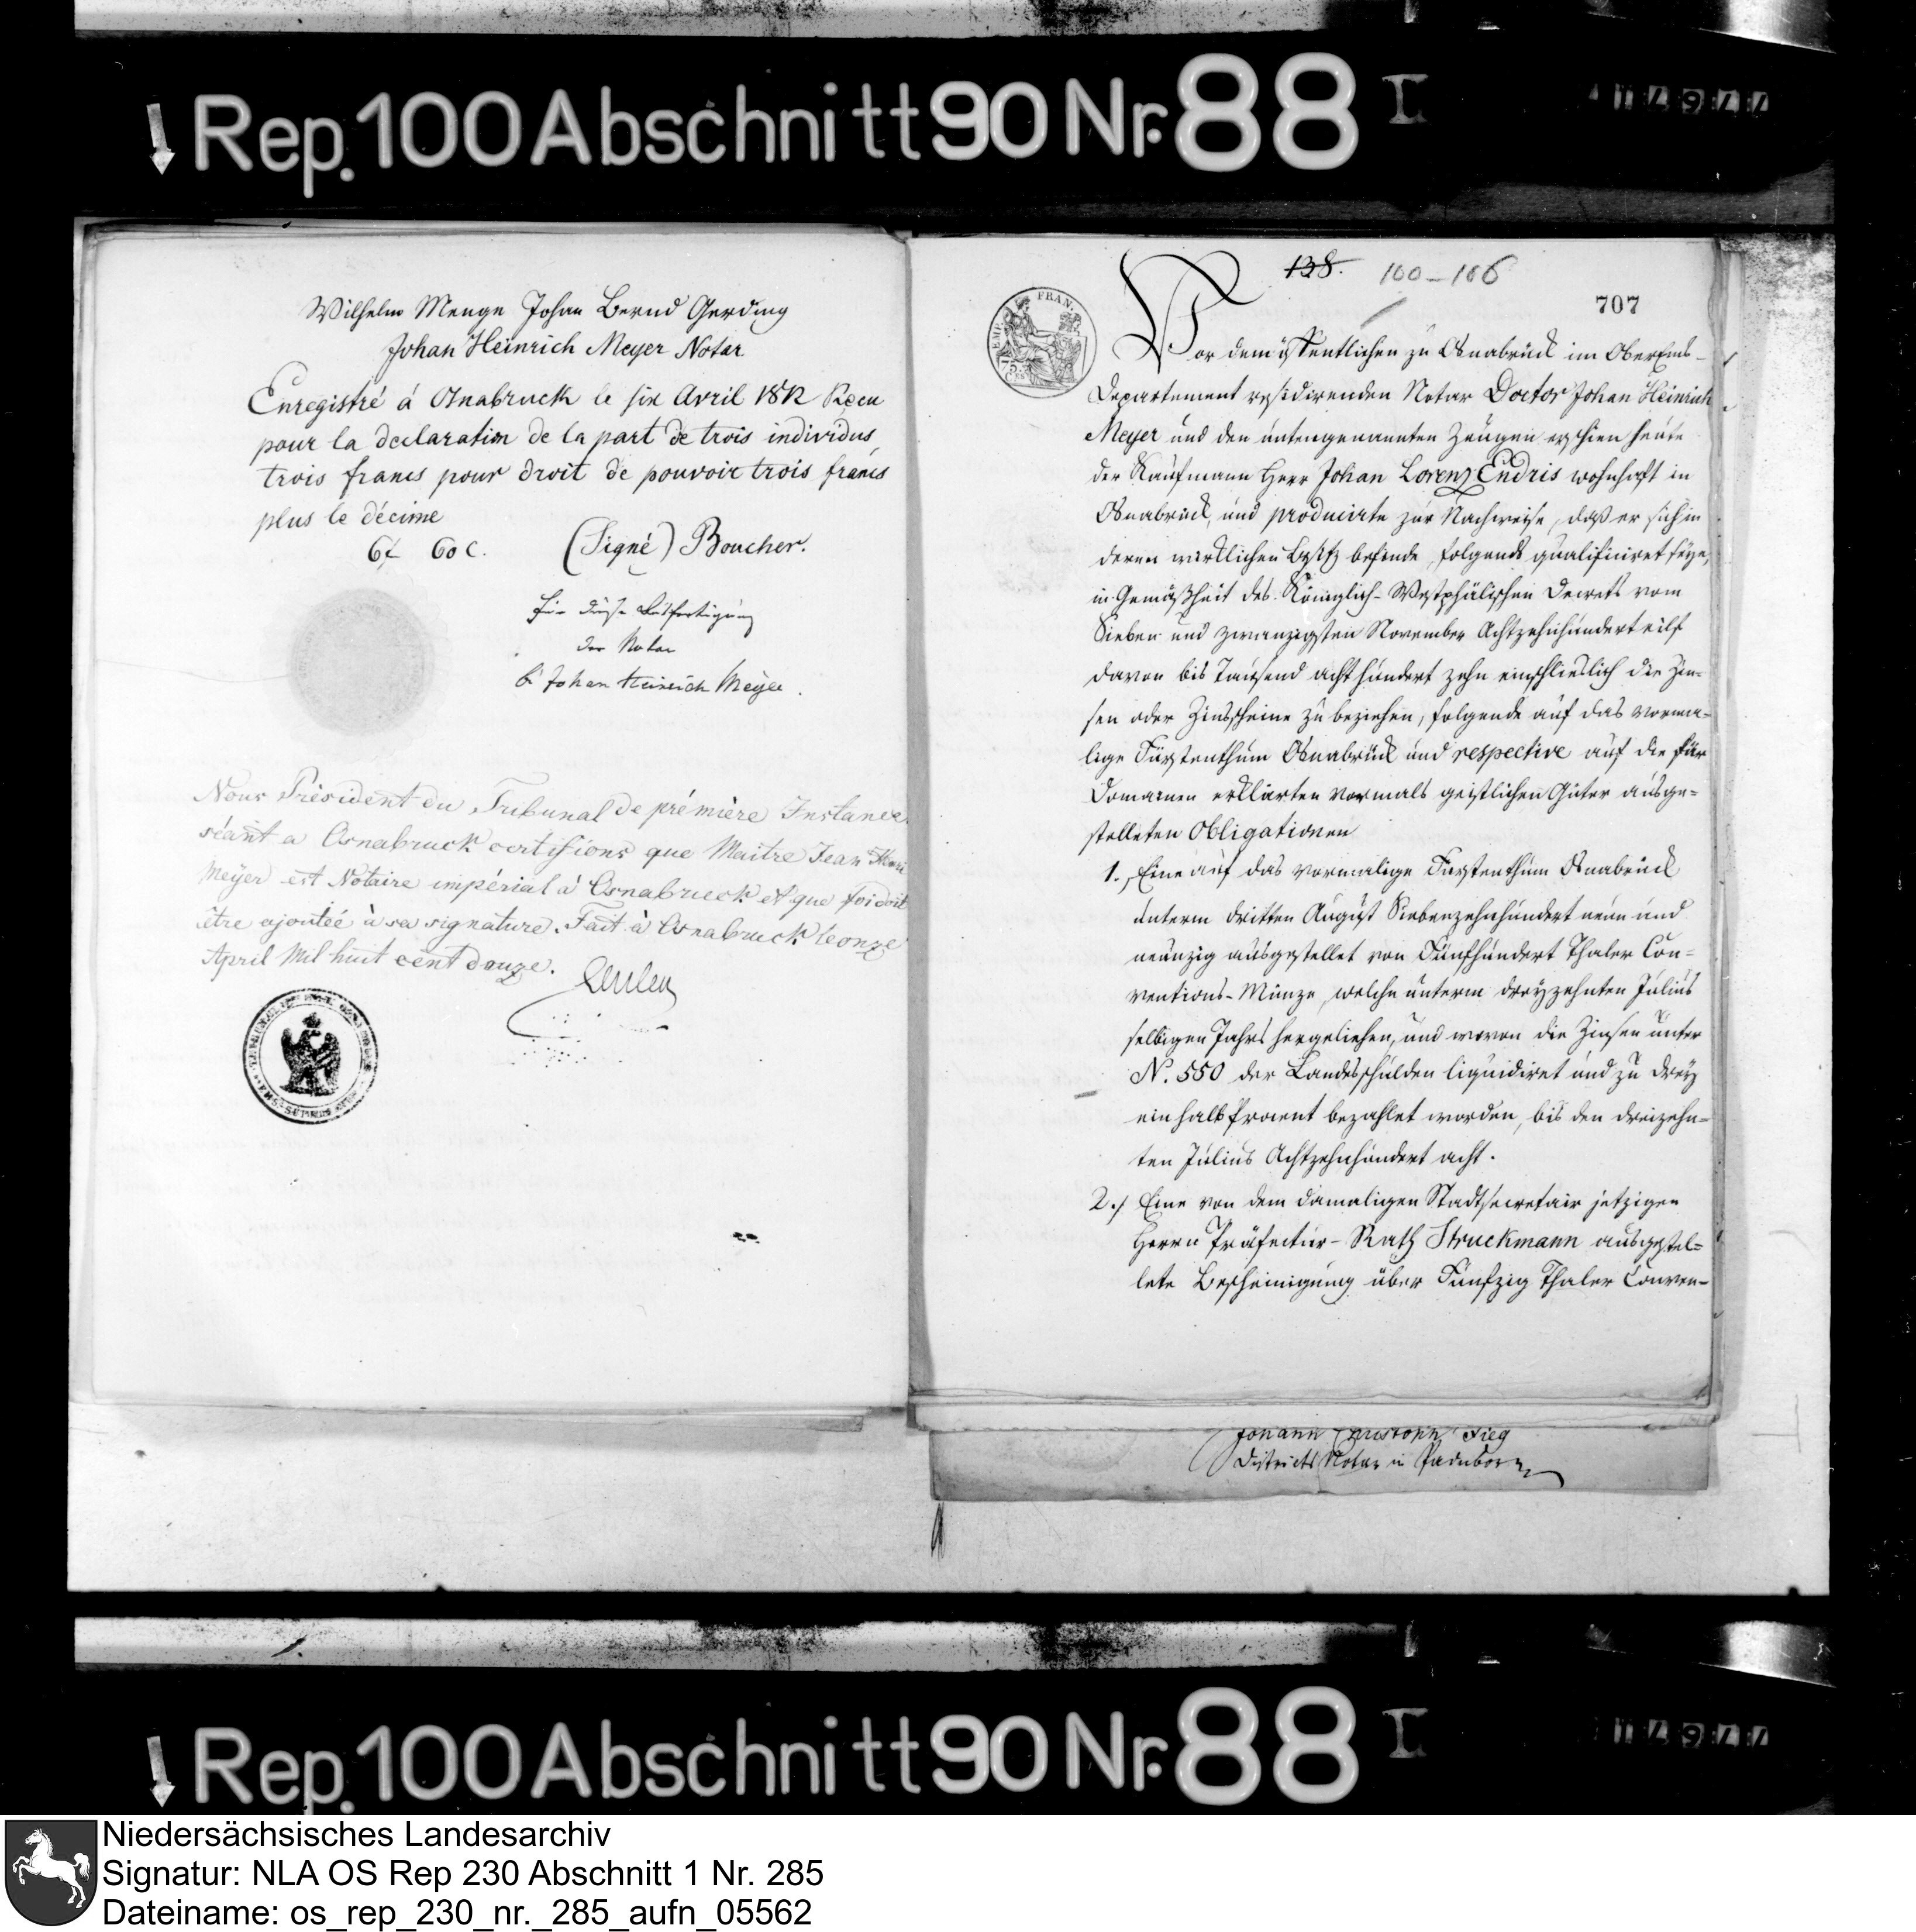 Rep. 100 Abschnitt 90 Nr. 88 I
Wilhelm Menge Johan Bernd Gerding
Johan Heinrich Meyer Notar
Enregistré á Osnabruck le six Avril 1812 Recu
pour la declaration de la part de trois individus
trois francs pour droit de pouvoir trois francs
plus le décime
6f 60 c. (Signé) Boucher.
für diese Ausfertigung
der Notar
Johan Heinrich Meyer.
Nous Président du Tribunal de prémière Instance
séant a Osnabruck certifions que Maitre Jean Henri
Meyer est Notaire impérial à Osnabrueck et que foi doit
être ajoutéé à sa signature. Fait à Osnabruck le onze
April Mil huit cent douze.
138. 100-106
707
FRAN.
Vor dem öffentlichen zu Osnabrück im OberEms-
Departement residirenden Notar Doctor Johan Heinrich
Meyer und den untengenannten Zeugen erschien heute
der Kaufmann Herr Johan Lorenz Endris wohnhaft in
Osnabrück, und producirte zur Nachweise, daß er sich in
deren wirklichen Besitz befinde, folgends qualificiret seye,
in Gemäßheit des Königlich-Westphälischen Decrets vom
Sieben und zwanzigsten November Achtzehnhundert eilf
davon bis Tausend acht hundert zehn einschlieslich die Zin-
sen oder Zinsscheine zu beziehen, folgende auf das vorma-
lige Fürstenthum Osnabrück und respective auf die für
Domainen erklärten vormals geistlichen Güter ausge-
stelleten Obligationen
1., Eine auf das vormalige Fürstenthum Osnabrück
unterm dritten August Siebenzehnhundert neun und
neunzig ausgestellet von Fünfhundert Thaler Con-
ventions-Münze, welche unterm dreyzehnten Julius
selbigen Jahrs hergeliehen, und wovon die Zinsen unter
N. 550 der Landesschulden liquidiret und zu drey
einhalb Procent bezahlet worden, bis den dreizehn-
ten Julius Achtzehnhundert acht.
2./ Eine von dem damaligen Stadtsecretair jetzigen
Herrn Präfectur-Rath Struckmann ausgestel-
lete Bescheinigung über Fünfzig Thaler Conven-
Johann Christoph Fieg
Districts Notar in Paderborn
Rep. 100 Abschnitt 90 Nr. 88 I
Niedersächsisches Landesarchiv
Signatur: NLA OS Rep 230 Abschnitt 1 Nr. 285
Dateiname: os_rep_230_nr._285_aufn_05562